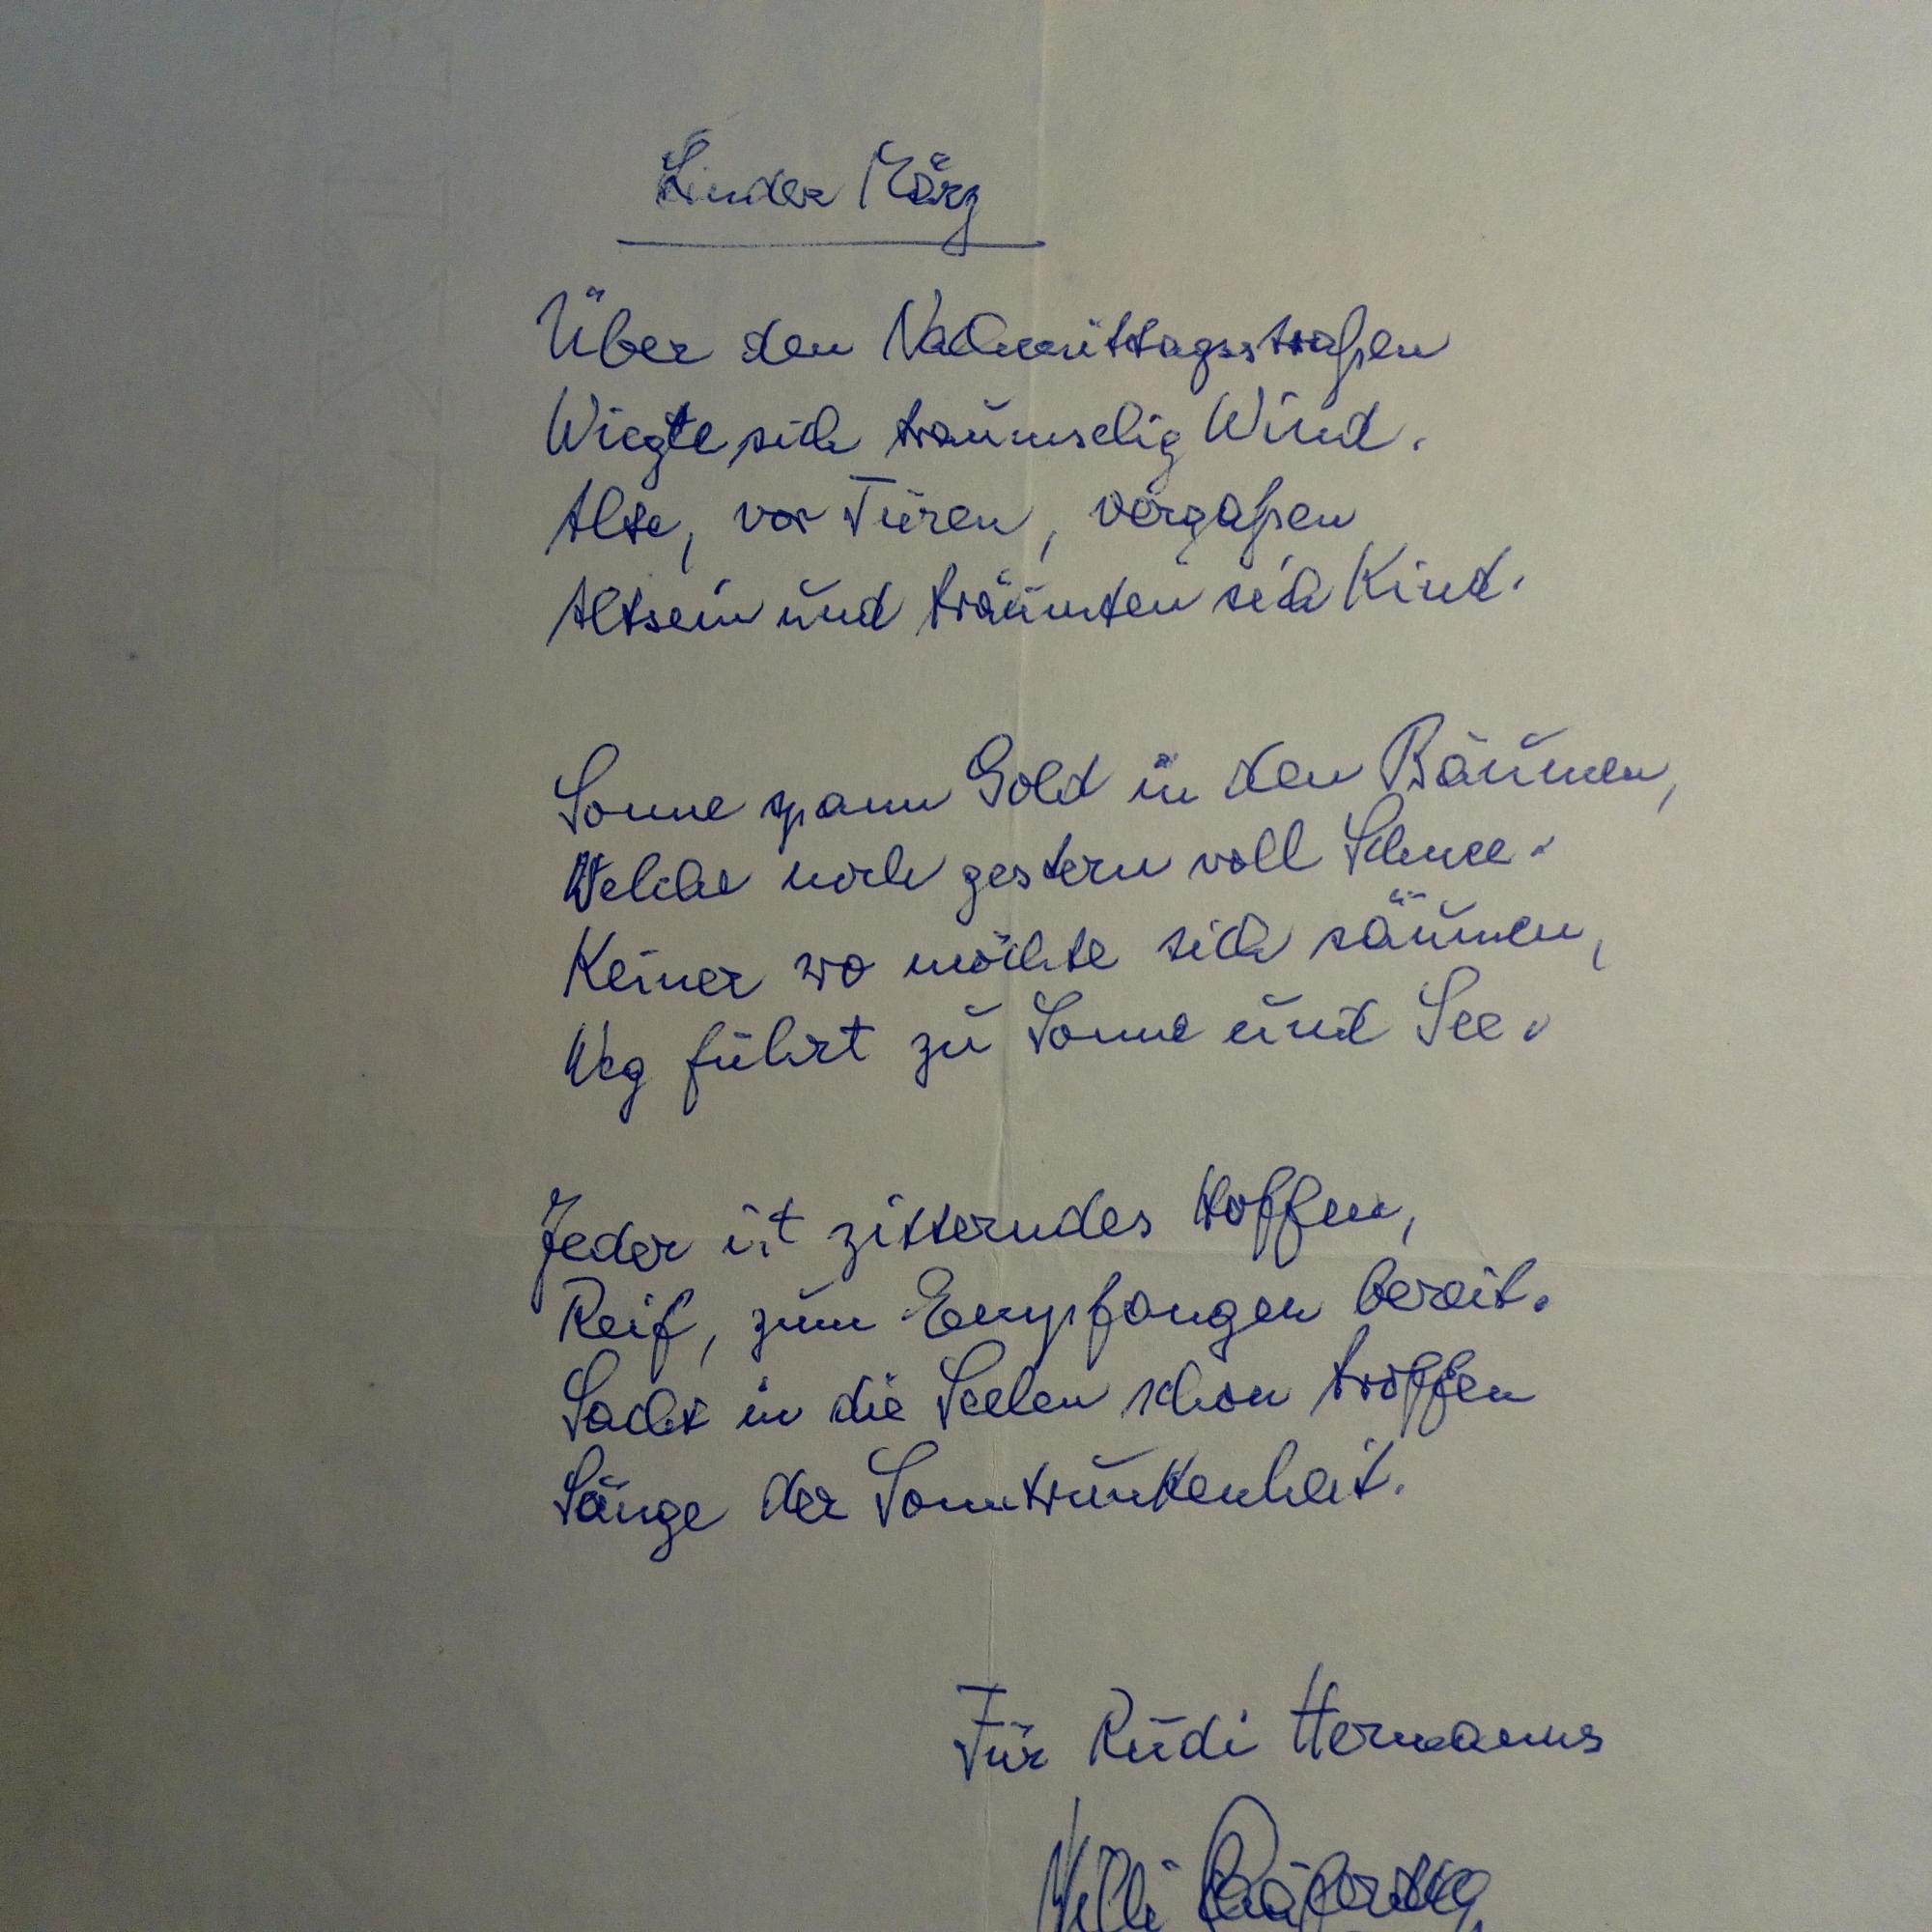 Linder März
Über den Nachmittagsstraßen
Wiegte sich traumselig Wind.
Alte, vor Türen, vergaßen
Altsein und träumten sich Kind.
Sonne spann Gold in den Bäumen,
Welche noch gestern voll Schnee.
Keiner wo möchte sich säumen,
Weg führt zu Sonne und See.
Jeder ist zitterndes Hoffen,
Reif, zum Empfangen bereit.
Sacht in die Seelen schon troffen
Sänge der Sonntrunkenheit.
Für Rudi Hermanns
Willi